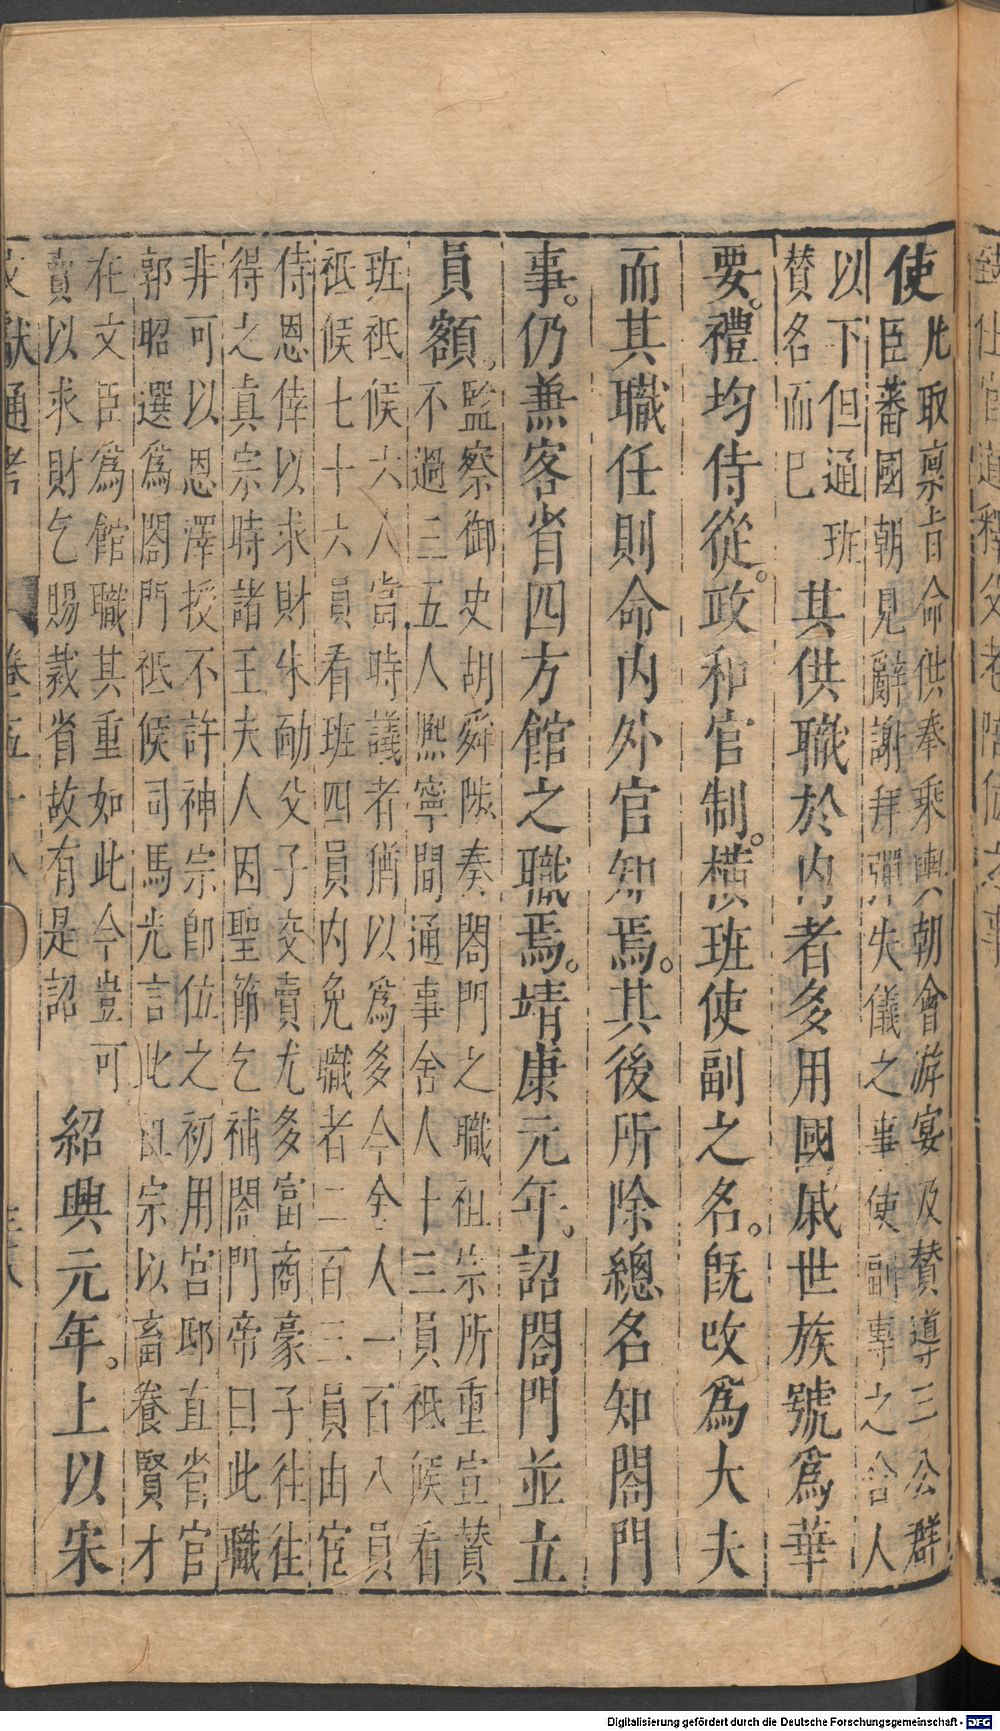 使凡取稟旨命供奉乘輿朝會游宴及贊導三公群
臣蕃國朝見辭謝拜彈失儀之事使副專之舍人
以下但通班
贊名而已
其供職於內者多用國戚世族號爲華
要。禮均侍從。政和官制。橫班使副之名。旣改爲大夫
而其職任則命內外官知焉。其後所除總名知閤門
事。仍兼客省四方館之職焉。靖康元年。詔閤門並立
員額。監察御史胡舜陟奏閤門之職祖宗所重宣贊
不過三五人熙寧間通事舍人十三員祗候看
班祗候六人當時議者猶以爲多今全人一百八員
祗候七十六員看班四員內免職者二百三員由宦
侍恩倖以求財朱勔父子交賣尤多富商豪子往往
得之真宗時諸王夫人因聖節乞補閤門帝曰此職
非可以恩澤授不許神宗卽位之初用宮邸直省官
郭昭選爲閤門祗候司馬光言此祖宗以畜養賢才
在文臣爲館職其重如此今豈可
賣以求財乞賜裁省故有是詔
紹興元年。上以宋
文獻通考 卷五十八
Digitalisierung gefördert durch die Deutsche Forschungsgemeinschaft - DFG